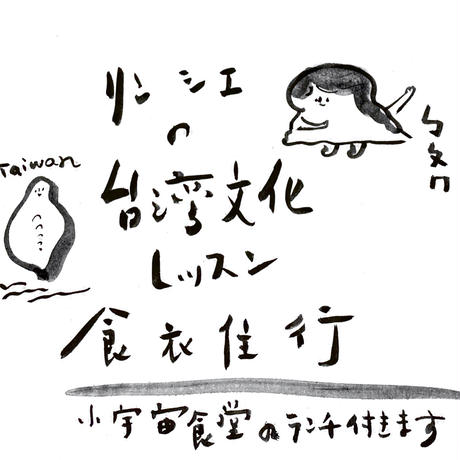 リンシエ
の
台湾文化
レッスン
食衣住行
小宇宙食堂のランチ付きます
Taiwan
ㄅㄆㄇ